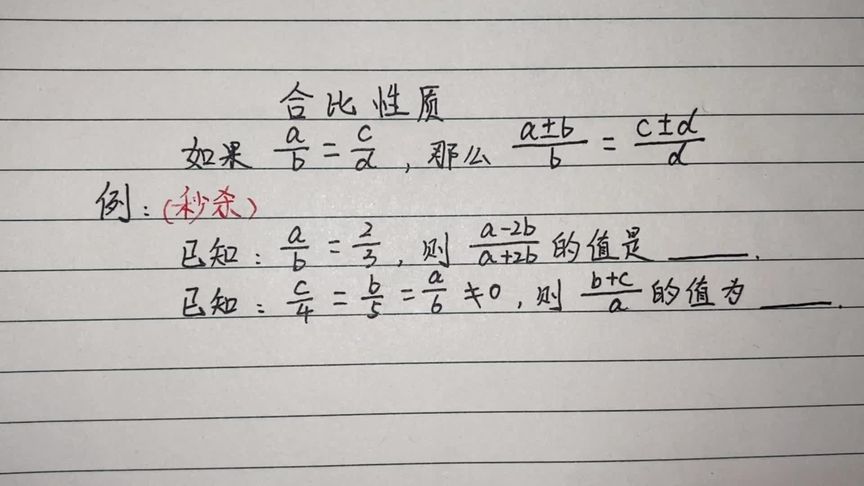 合比性质
如果 a/b = c/d , 那么 (a±b)/b = (c±d)/d
例：(秒杀)
已知：a/b = 2/3 , 则 (a-2b)/(a+2b) 的值是 ____.
已知：c/4 = b/5 = a/6 ≠0 , 则 (b+c)/a 的值为 ____.